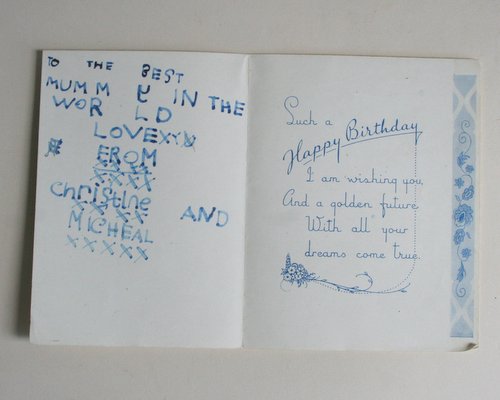 TO THE BEST
MUMMY IN THE
WORLD
LOVEXXX
FROM
XXXX
Christine
XXXX AND
MICHEAL
XXXXX
Such a
Happy Birthday
I am wishing you,
And a golden future
With all your
dreams come true.